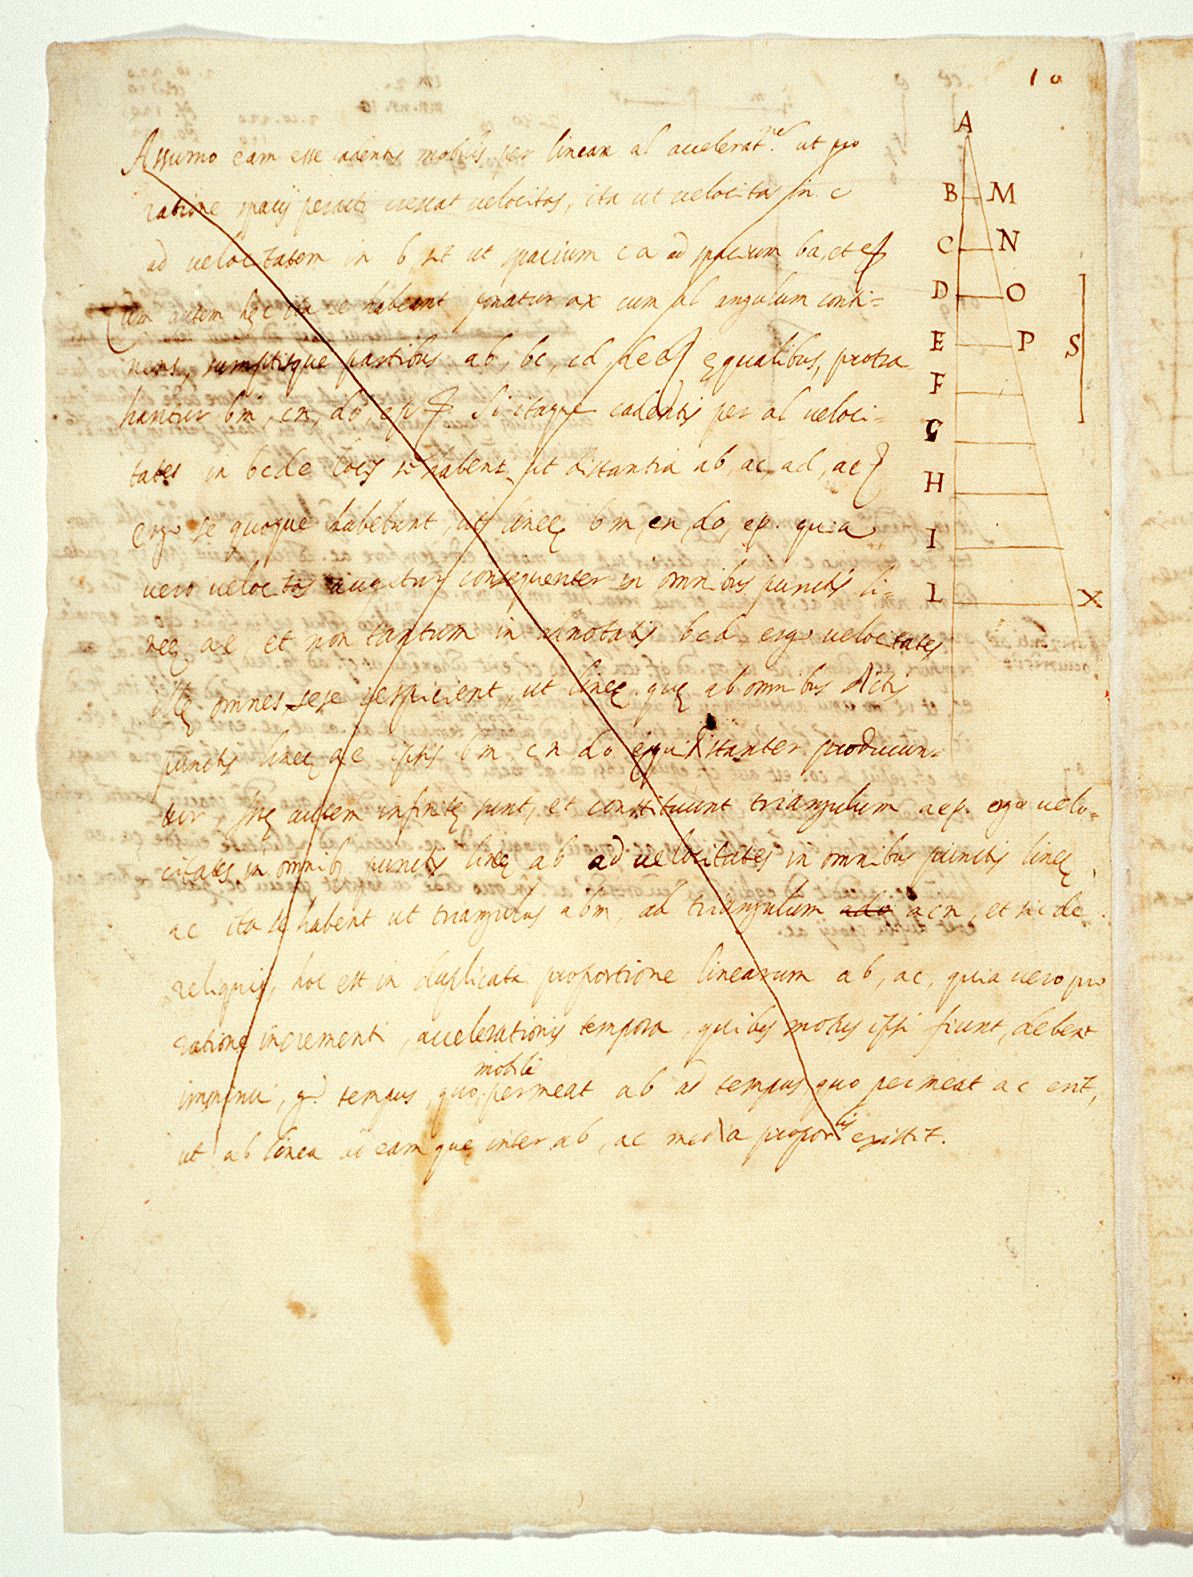 10
Assumo eam esse cadentis mobilis per lineam al accelerat.nem ut pro
ratione spacij peracti crescat velocitas, ita ut velocitas in c
ad velocitatem in b sit ut spacium ca ad spacium ba, etc.
Cum autem hęc ita se habeant ponatur ax cum al angulum conti=
nens, sumptisque partibus ab, bc, cd, de etc. ęqualibus, protra-
hantur bm, cn, do, ep etc. Si itaque cadentis per al veloci=
tates in bcde locis se habent ut distantia ab, ac, ad, ae etc.
ergo se quoque habebunt, ut lineę bm, cn, do, ep. quia
vero velocitas augetur consequenter in omnibus punctis li=
neę ae et non tantum in adnotatis bcd, ergo velocitates
illę omnes sese respicient, ut lineę quę ab omnibus dictis
punctis lineę ae ipsis bm cn do equidistanter producun=
tur, Istę autem infinitę sunt, et constituunt triangulum aep. ergo velo-
citates in omnibus punctis lineę ab ad velocitates in omnibus punctis lineę
ac ita se habent ut triangulus abm, ad triangulum ado acn, et sic de
reliquis, hoc est in duplicata proportione linearum ab, ac, quia vero pro
ratione incrementi, accelerationis tempora, quibus motus ipsi fiunt, debent
mobile
imminui, ergo tempus, quo permeat ab ad tempus quo permeat ac erit,
ut ab linea ad eam quę inter ab, ac media proportionalis existit.
A
B M
C N
D O
E P S
F
G
H
I
L X